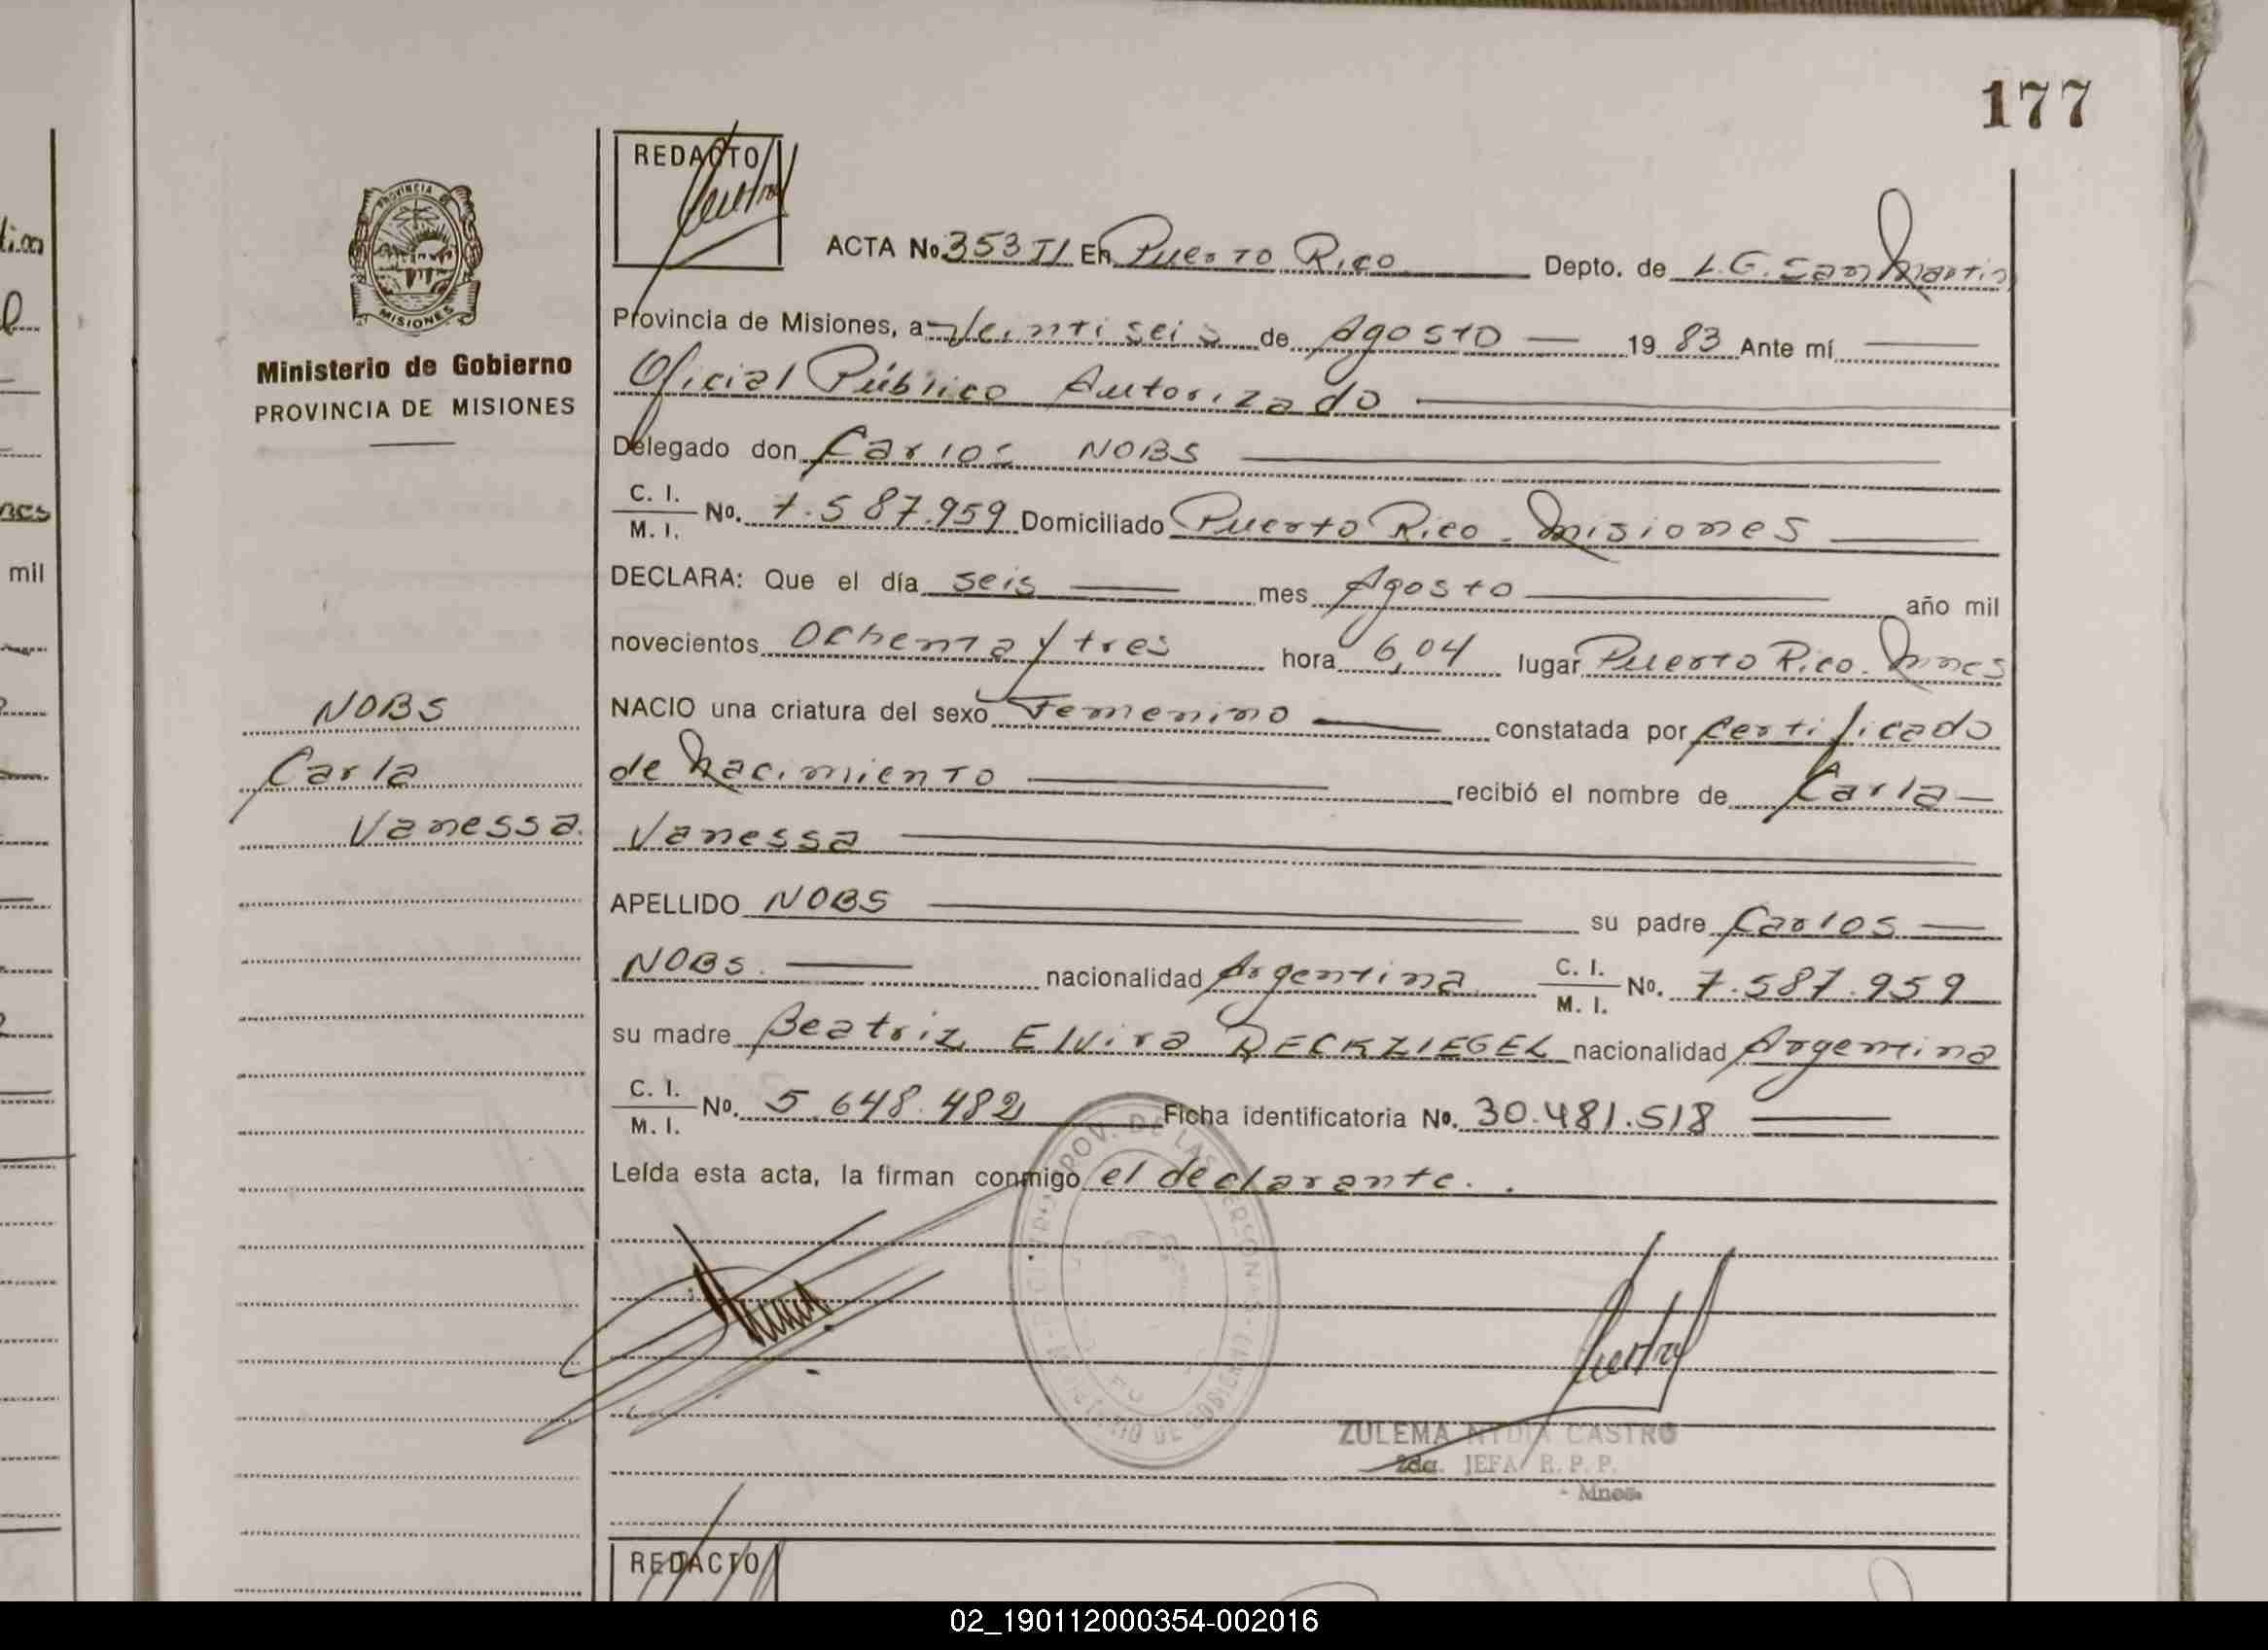 177
REDACTO
ACTA No. 353 TI En Puerto Rico Depto. de L.G. San Martin
PROVINCIA
MISIONES
Provincia de Misiones, a Veintiseis de Agosto 1983 Ante mí
Ministerio de Gobierno
PROVINCIA DE MISIONES
Oficial Público Autorizado
Delegado don Carlos NOBS
C. I.
M. I. No. 7.587.959 Domiciliado Puerto Rico - Misiones
DECLARA: Que el día seis mes Agosto año mil
novecientos Ochenta y tres hora 6,04 lugar Puerto Rico. Mnes
NACIO una criatura del sexo Femenino constatada por certificado
de Nacimiento recibió el nombre de Carla
Vanessa
NOBS
Carla
Vanessa.
APELLIDO NOBS su padre Carlos
NOBS. nacionalidad Argentina C. I.
M. I. No. 7.587.959
su madre Beatriz Elvira DECKZIEGEL nacionalidad Argentina
C. I.
M. I. No. 5.648.482 Ficha identificatoria No. 30.481.518
Leída esta acta, la firman conmigo el declarante.
ZULEMA NYDIA CASTRO
2da. JEFA R. P. P.
- Mnes.
REDACTO
mil
02_190112000354-002016